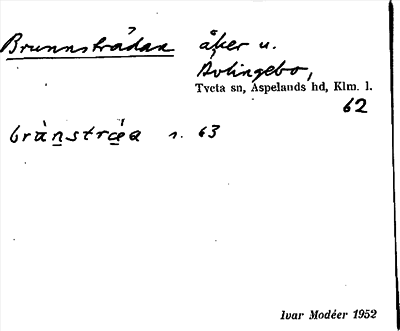 Brunnsträdan åker u.
Avlingebo,
Tveta sn, Aspelands hd, Klm. l.
62
brànstræ̀a s. 63
Ivar Modéer 1952